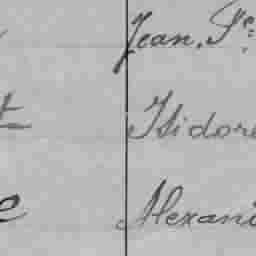 Jean, Pe
t Isidore
e Alexan